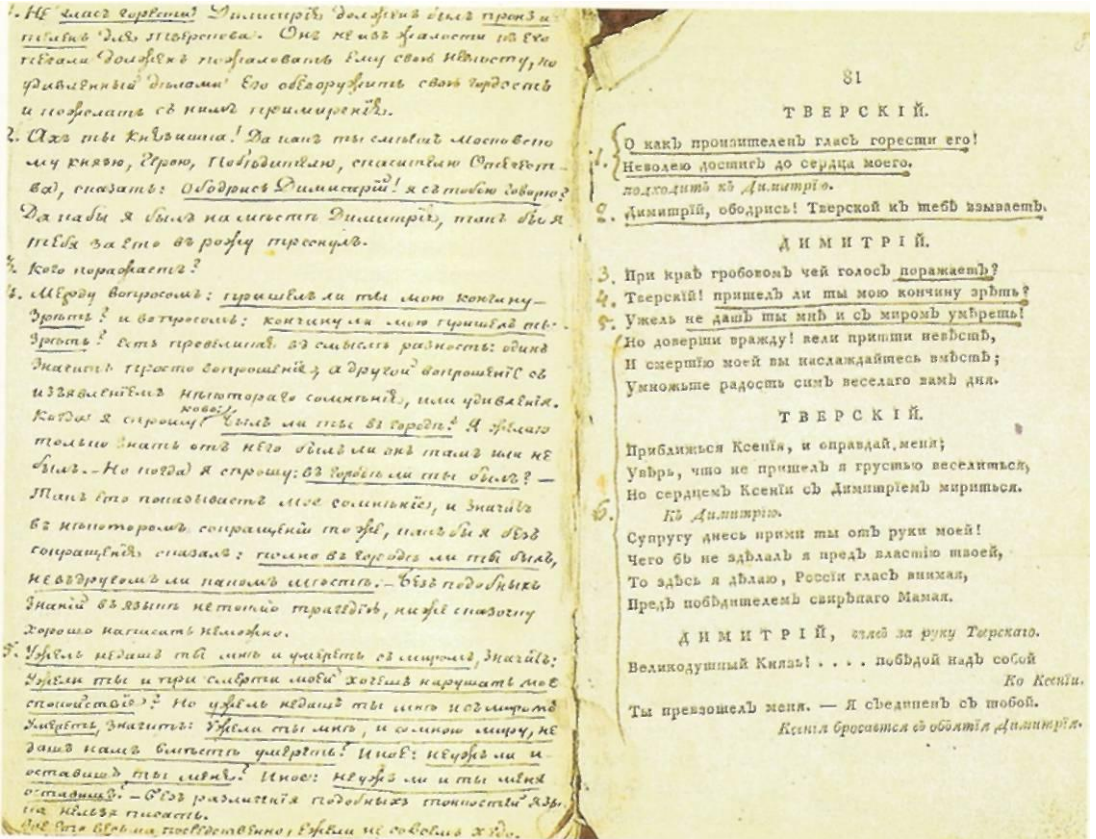 1. Не гласъ горести Димитрія долженъ былъ пронзи-
теленъ для Тверскова. Онъ не изъ жалости къ его
печали долженъ пожаловать ему свою невѣсту, но
удивленный дѣлами Его обезоружить свою гордость
и пожелать съ нимъ примиренія.
2. Ахъ ты Княжишка! Да какъ ты смѣешъ московско
му князю, Герою, Побѣдителю, спасителю Отечест-
ва, сказать: ободрись Димитрій! я съ тобою говорю?
Да кабы я былъ на мѣстѣ Димитрія, такъ бы я
тебя за ето въ рожу треснулъ.
3. Кого поражаетъ?
4. Между вопросомъ: пришелъ ли ты мою кончину
зрѣть? и вопросомъ: кончину ли мою пришелъ ты
зрѣть? есть превеликая въ смыслѣ разность: одинъ
значитъ просто вопрошеніе, а другой вопрошеніе съ
изъявленіемъ нѣкотораго сомнѣнія, или удивленія.
Когда я спрошу ково: былъ ли ты въ городѣ? Я желаю
только знать отъ него былъ ли онъ тамъ или не
былъ. – Но когда я спрошу: въ городѣ ли ты былъ? —
Такъ ето показываетъ мое сомнѣніе, и значитъ
въ нѣкоторомъ сокращеніи то же, какъ бы я безъ
сокращенія сказалъ: полно въ городѣ ли ты былъ,
не въ другомъ ли какомъ мѣстѣ. – Безъ подобныхъ
знаній въ языкѣ не токмо трагедію, ниже сказочку
хорошо написать неможно.
5. Ужель недашъ ты мнѣ и умереть съ миромъ, значитъ:
Ужели ты и при смерти моей хочешъ нарушать мое
спокойствіе? Но ужель недашъ ты мнѣ и съ миромъ
умереть, значитъ: Ужели ты мнѣ, и со мною миру, не
дашъ намъ вмѣстѣ умереть? Иное: неужъ ли и
оставишъ ты меня? Иное: неужъ ли и ты меня
оставишъ? – Безъ различія подобныхъ тонкостей язы-
ка нельзя писать.
Все ето весьма посредственно, ежели не совсемъ худо.
81
ТВЕРСКІЙ.
1. О какъ произителенъ гласъ горести его!
Неволею достигъ до сердца моего.
подходитъ къ Димитрію.
2. Димитрій, ободрись! Тверской къ тебѣ взываетъ.
ДИМИТРІЙ.
3. При краѣ гробовомъ чей голосъ поражаетъ?
4. Тверскій! пришелъ ли ты мою кончину зрѣть?
5. Ужель не дашъ ты мнѣ и съ миромъ умѣреть!
Но доверши вражду! вели притти невѣстѣ,
И смертію моей вы наслаждайтесь вмѣстѣ;
Умножьте радость симъ веселаго вамъ дня.
ТВЕРСКІЙ.
Приближься Ксенія, и оправдай меня;
Увѣрь, что не пришелъ я грустью веселиться,
Но сердцемъ Ксеніи съ Димитріемъ мириться.
6. Къ Димитрію.
Супругу днесь прими ты отъ руки моей!
Чего бъ не здѣлалъ я предъ властію твоей,
То здѣсь я дѣлаю, Россіи гласъ внимая,
Предъ побѣдителемъ свирѣпаго Мамая.
ДИМИТРІЙ, взявъ за руку Тверскаго.
Великодушный Князь! . . . . побѣдой надъ собой
Ко Ксеніи.
Ты превзошелъ меня. — Я съединенъ съ тобой.
Ксенія бросается въ объятія Димитрія.